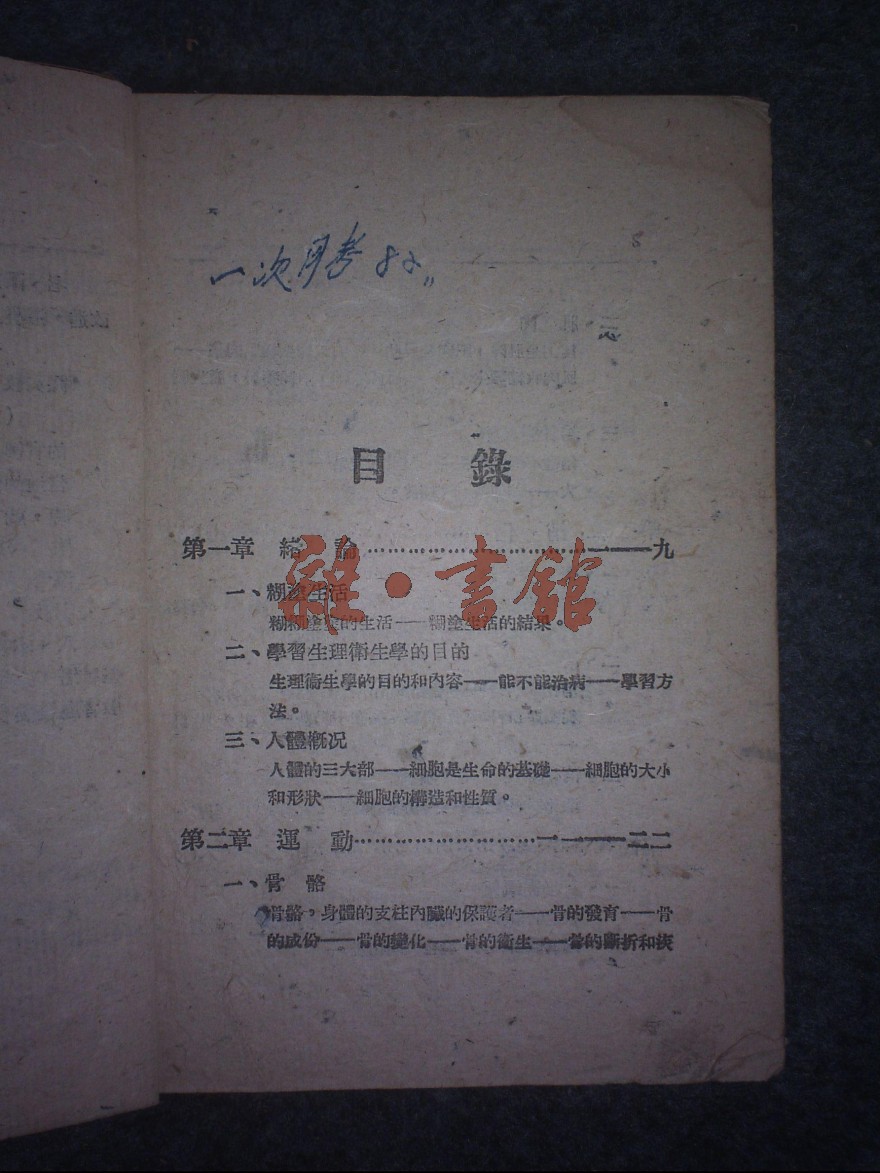 一次月考 82"
目 錄
第一章 緒 論……………………………一——九
一、糊塗生活
糊糊塗塗的生活——糊塗生活的結果。
二、學習生理衛生學的目的
生理衞生學的目的和內容——能不能治病——學習方
法。
三、人體槪況
人體的三大部——細胞是生命的基礎——細胞的大小
和形狀——細胞的構造和性質。
第二章 運 動……………………………一一——二二
一、骨 骼
骨骼，身體的支柱內臟的保護者——骨的發育——骨
的成份——骨的變化——骨的衞生——骨的斷折和挾
雜·書館